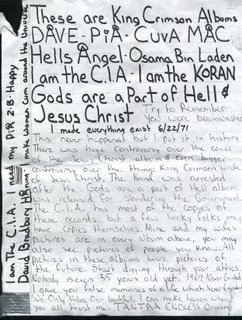 These are King Crimson Albums
DAVE - PiA - CUVA MAC
Hells Angel - Osama Bin Laden
I am the C.I.A. I am the KORAN
Gods are a Part of Hell &
Jesus Christ
Try to Remember
You were brainwashed
I made everything exist 6/22/71
This never happened but I put it in history
There was huge controversy the cover
of and bigger
controversy over the things King Crimson wrote
for Jesus Christ. The band was arrested
after the Gods are a part of Hell album
was released for slandering the Government
The C.I.A. has most of the copies of
these records, but a few lucky folks may
have copies themselves. Mine and my wifes
pictures are in every album above, you may
also see pictures of people you know. The
pictures in these albums were pictures of
the future. Start digging through your attics.
Nobody is ever 35 years old yet. 1989 Year
I gave you false memories of a life which never
We Only I can make heaven when
you all trust me TANTRA ENDLESS Orgasm
I am The C.I.A. I need my P.I.R. 2-B-Happy
David Bradbury
I make Women Cum around the Universe